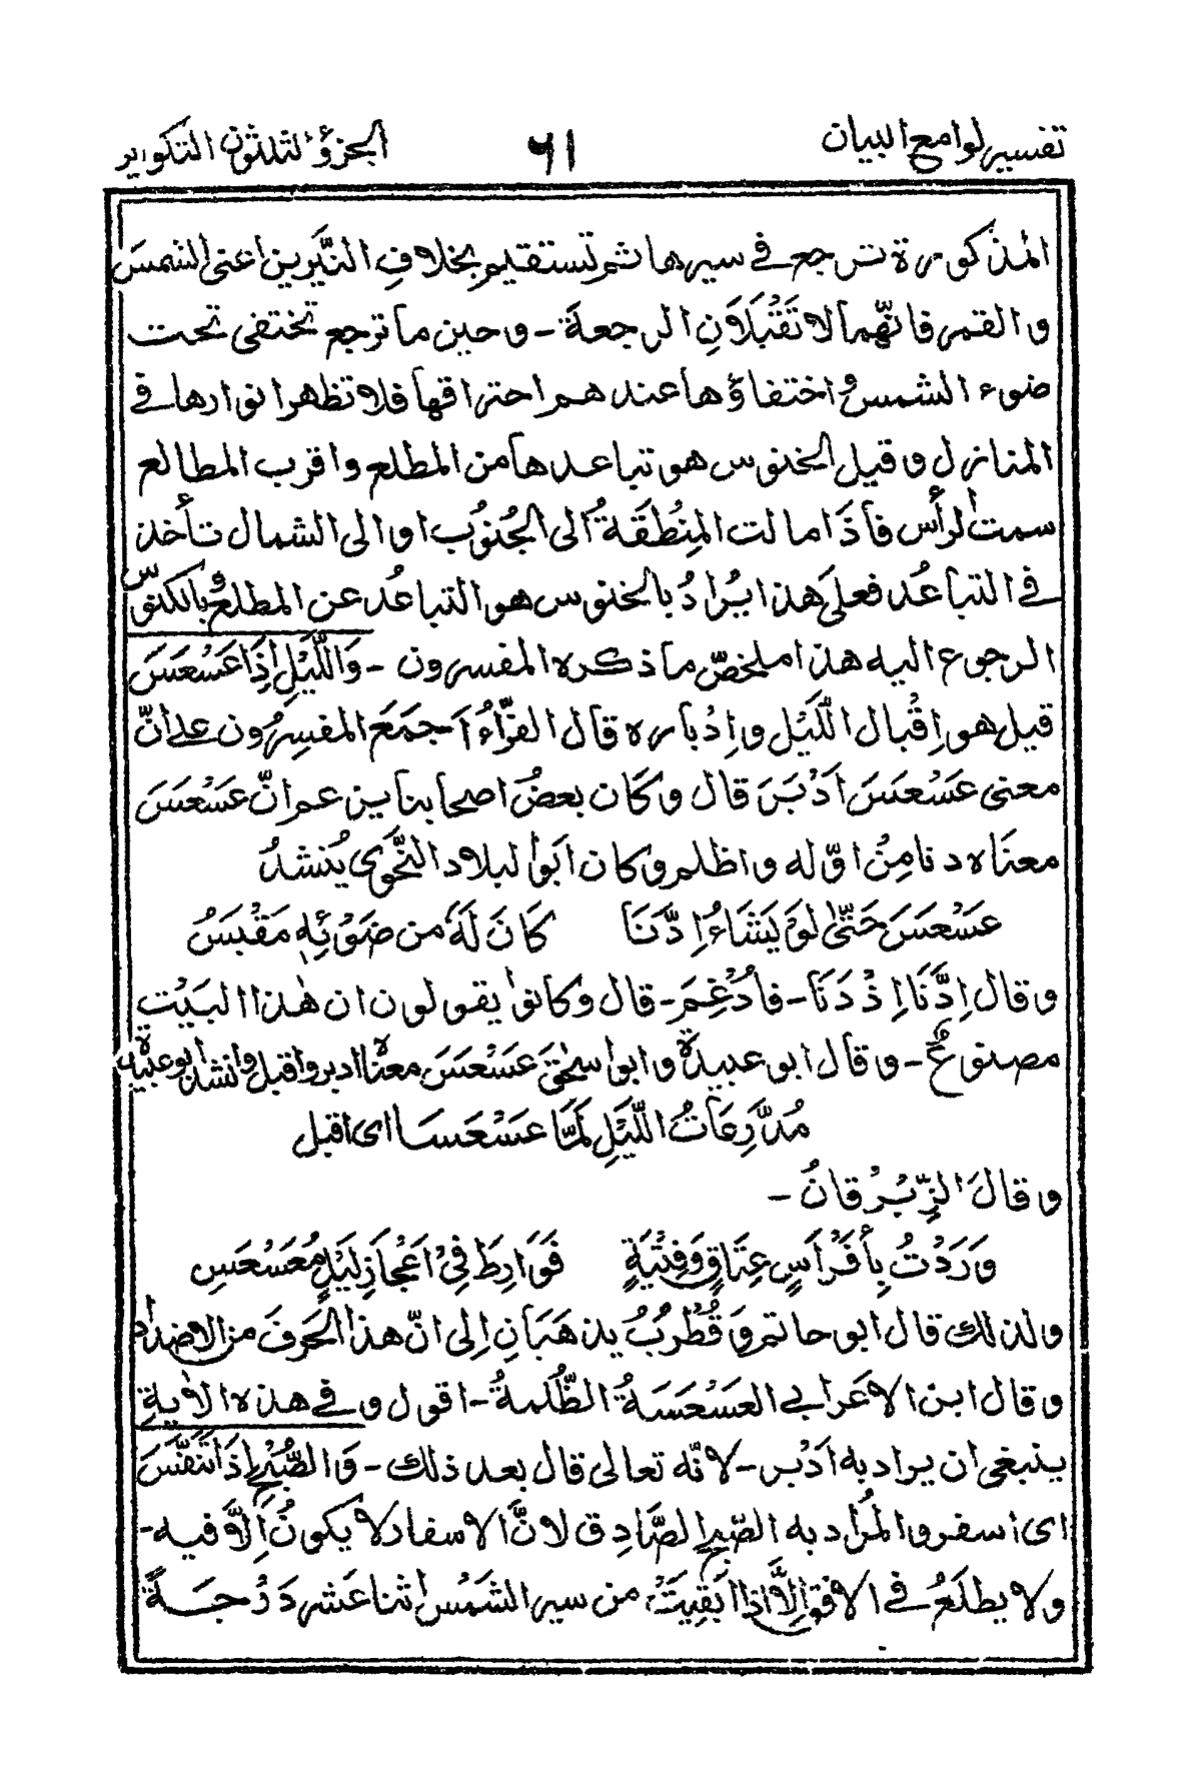 تفسير لوامع البيان ٦١ الجزؤ الثلثون التكوير
المذكورة ترجع في سيرها ثم تستقيم بخلافِ النَّيّرين اعنى الشمسَ
والقمر فانّهما لا تَقْبَلَانِ الرجعةَ - وحين ما ترجع تختفى تحت
ضوء الشمس واختفاؤها عند هم احتراقها فلا تظهر انوارها في
المنازل وقيل الخنوس هو تباعدها من المطلع واقرب المطالع
سمت الرأس فأذا مالت المِنْطَقَةُ الى الجُنُوْب او الى الشمال تأخذ
في التباعُد فعلى هذا يُرادُ بالخنوس هو التباعُد عن المطلع وبالكنوس
الرجوع اليه هذا ملخصّ ما ذكره المفسرون - وَاللَّيْلِ إِذَا عَسْعَسَ
قيل هو اِقْبال اللَّيْل واِدْباره قال الفرَّاءُ اَجمَعَ المفسِرُون على انّ
معنى عَسْعَسَ اَدْبَرَ قال وكَان بعضُ اصحابنا يزعم انّ عَسْعَسَ
معنَاه دنا مِنْ اوّله واظلم وكان ابوالبلاد النَّحْوِى يُنشدُ
عَسْعَسَ حَتّىٰ لَوْ يَشَاءُ اِدَّنَا كَانَ لَهٗ من ضَوْئِهٖ مَقْبَسُ
وقال اِدَّنَا اِذْ دَنَا - فأُدْغِمَ - قال وكانوا يقولون ان هٰذا البَيْت
مصنوعٌ - وقال ابو عبيدة وابو اسحٰق عَسْعَسَ معناه ادبر واقبل وانشد ابو عبيدة
مُدَّرِعَاتُ اللَّيْلِ لَمَّا عَسْعَسَا اى اقبل
وقالَ الزِّبْرقانُ -
وَرَدْتُ بِأَفْرَاسٍ عِتَاقٍ وَفِتْيَةٍ فَوَارِطَ فِيْ اَعْجَازِ لَيْلٍ مُعَسْعَسِ
ولذلك قال ابو حاتم وَقُطْرُبُ يذهَبَانِ اِلى انّ هذا الحَرفَ من الاضداد
وقال ابن الاعَرابي العَسْعَسَةُ الظُّلمةُ - اقول وفي هذه الاٰيةِ
ينبغى ان يراد به اَدْبر - لانّه تعالى قال بعد ذلك - وَالصُّبْحِ إِذَا تَنَفَّسَ
اى اسفر والمُراد به الصّبح الصَّادِق لانَّ الاسفار لا يكونُ اِلَّا فيه -
ولا يطلَعُ في الافق اِلَّا اِذا بَقِيَتْ من سير الشَمْس اثنا عَشر دَرْجَةً